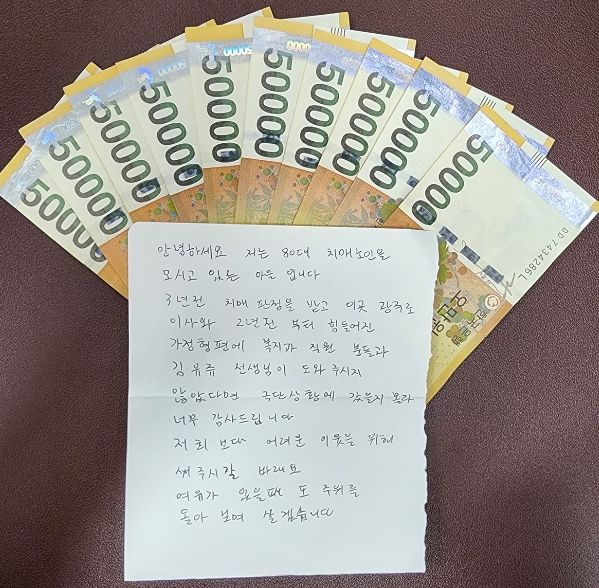 50000
50000
50000
50000
50000
50000
50000
50000
50000
50000
DD7434286L
안녕하세요 저는 80대 치매노인을
모시고 있는 아들 입니다
3년전 치매 판정을 받고 이곳 광주로
이사와 2년전 부터 힘들어진
가정형편에 복지과 직원 분들과
김유쥬 선생님이 도와주시지
않았다면 극단상황에 갔을지 몰라
너무 감사드립니다
저희 보다 어려운 이웃을 위해
써주시길 바래요
여유가 있을때 또 주위를
돌아 보며 살겠습니다